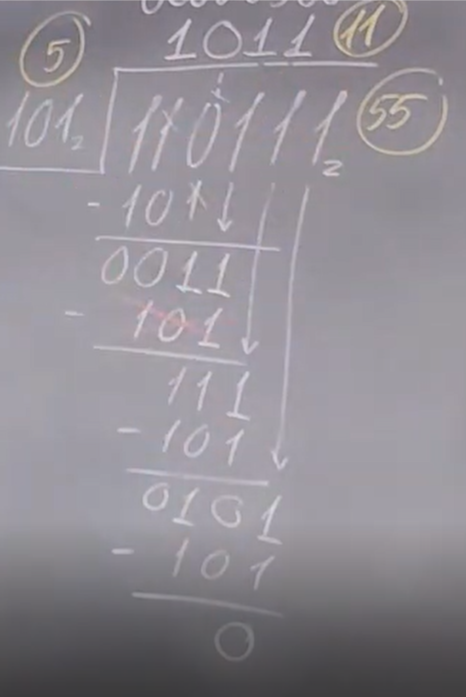 5 1011 11
101₂ 110111₂ 55
- 101
0011
- 101
111
- 101
0101
- 101
0